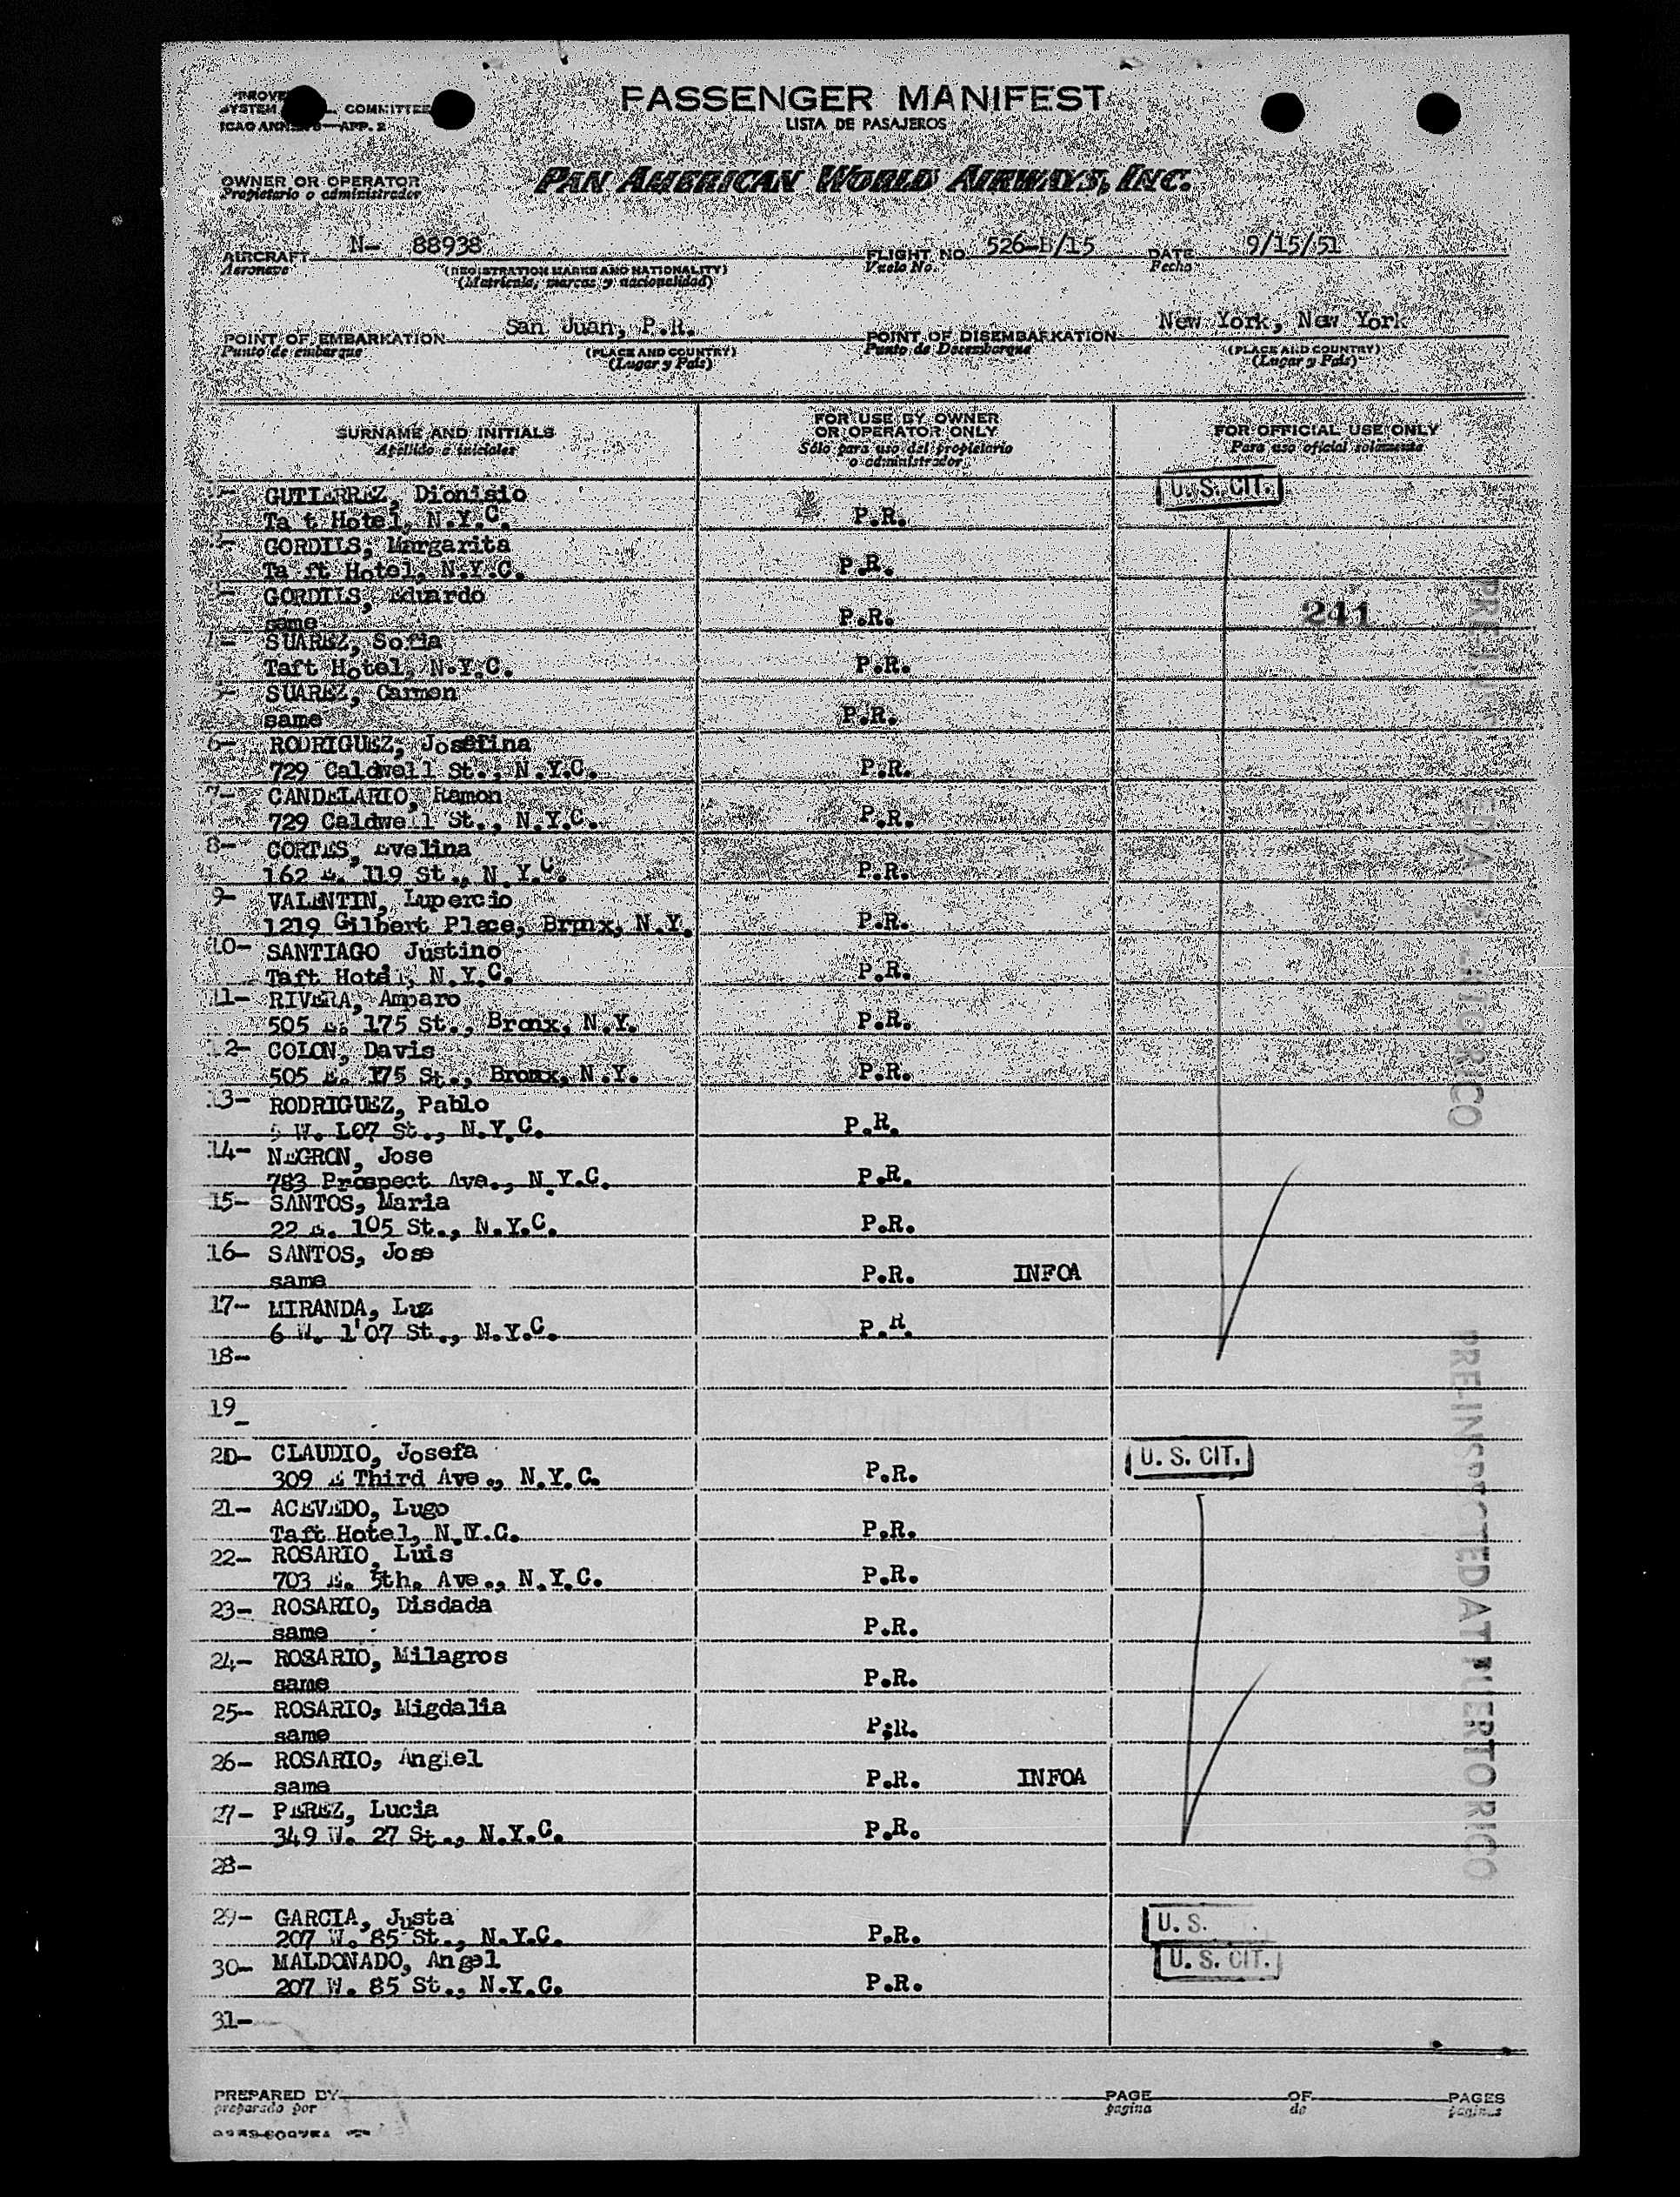 COMMITTEE
PASSENGER MANIFEST
LISTA DE PASAJEROS
OWNER OR OPERATOR
Propietario o administrador
PAN AMERICAN WORLD AIRWAYS, INC.
AIRCRAFT N- 88938 FLIGHT NO. 526-B/15 DATE 9/15/51
Aeronave (REGISTRATION MARKS AND NATIONALITY) Vuelo No. Fecha
(Matrícula, marcas y nacionalidad)
POINT OF EMBARKATION San Juan, P.R. POINT OF DISEMBARKATION New York, New York
Punto de embarque (PLACE AND COUNTRY) Punto de Desembarque (PLACE AND COUNTRY)
(Lugar y País) (Lugar y País)
SURNAME AND INITIALS
Apellido e iniciales
FOR USE BY OWNER
OR OPERATOR ONLY
Sólo para uso del propietario
o administrador
FOR OFFICIAL USE ONLY
Para uso oficial solamente
GUTIERREZ, Dionisio U. S. CIT.
Ta t Hotel, N.Y.C. P.R.
GORDILS, Margarita
Ta ft Hotel, N.Y.C. P.R.
GORDILS, Eduardo
same P.R. 241
SUAREZ, Sofia
Taft Hotel, N.Y.C. P.R.
SUAREZ, Carmen
same P.R.
6- RODRIGUEZ, Josefina
729 Caldwell St., N.Y.C. P.R.
7- CANDELARIO, Ramon
729 Caldwell St., N.Y.C. P.R.
8- CORTES, Evelina
162 E. 119 St., N.Y.C. P.R.
9- VALENTIN, Lupercio
1219 Gilbert Place, Brmx, N.Y. P.R.
10- SANTIAGO Justino
Taft Hotel, N.Y.C. P.R.
11- RIVERA, Amparo
505 E. 175 St., Bronx, N.Y. P.R.
12- COLON, Davis
505 E. 175 St., Bronx, N.Y. P.R.
13- RODRIGUEZ, Pablo
W. 107 St., N.Y.C. P.R.
14- NEGRON, Jose
783 Prospect Ave., N.Y.C. P.R.
15- SANTOS, Maria
22 E. 105 St., N.Y.C. P.R.
16- SANTOS, Jose
same P.R. INFOA
17- MIRANDA, Luz
6 W. 1'07 St., N.Y.C. P.R.
18-
19
-
20- CLAUDIO, Josefa U. S. CIT.
309 E Third Ave., N.Y.C. P.R.
21- ACEVEDO, Lugo
Taft Hotel, N.Y.C. P.R.
22- ROSARIO, Luis
703 E. 5th. Ave., N.Y.C. P.R.
23- ROSARIO, Disdada
same P.R.
24- ROSARIO, Milagros
same P.R.
25- ROSARIO, Migdalia
same P.R.
26- ROSARIO, Angiel
same P.R. INFOA
27- PEREZ, Lucia
349 W. 27 St., N.Y.C. P.R.
28-
29- GARCIA, Justa U. S.
207 W. 85 St., N.Y.C. P.R.
30- MALDONADO, Angel U. S. CIT.
207 W. 85 St., N.Y.C. P.R.
31-
PREPARED BY PAGE OF PAGES
preparado por pagina de paginas
PRE-INSPECTED AT PUERTO RICO